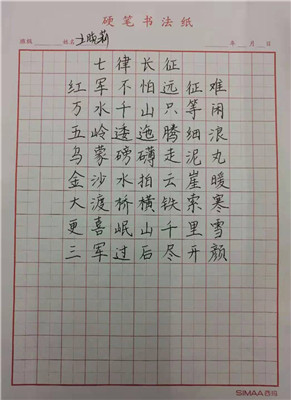 硬笔书法纸
班级 姓名 王晓莉 年 月 日
七律长征
红军不怕远征难
万水千山只等闲
五岭逶迤腾细浪
乌蒙磅礴走泥丸
金沙水拍云崖暖
大渡桥横铁索寒
更喜岷山千里雪
三军过后尽开颜
SIMAA西玛